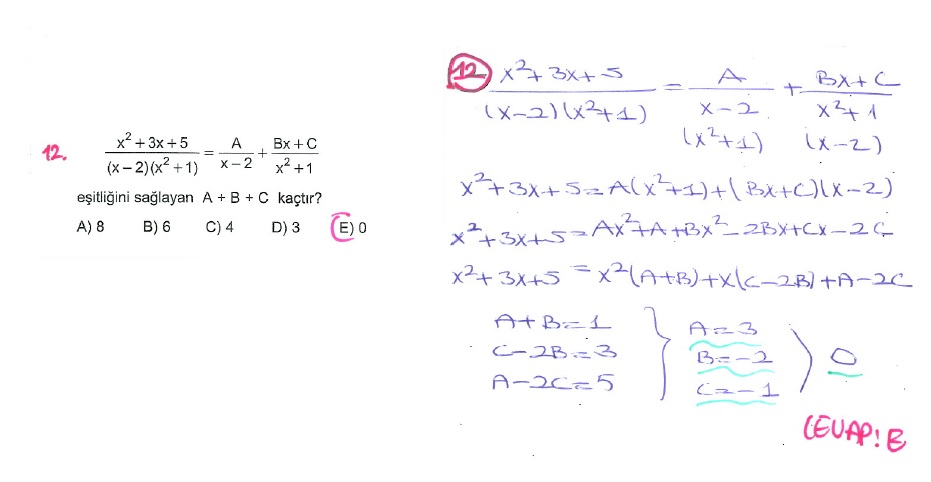 12. x² + 3x + 5 / (x – 2)(x² + 1) = A / x – 2 + Bx + C / x² + 1
eşitliğini sağlayan A + B + C kaçtır?
A) 8 B) 6 C) 4 D) 3 E) 0
12 x² + 3x + 5 / (x-2)(x²+1) = A / x-2 + Bx + C / x²+1
(x²+1) (x-2)
x²+3x+5 = A(x²+1)+(Bx+C)(x-2)
x²+3x+5 = Ax²+A+Bx²-2Bx+Cx-2C
x²+3x+5 = x²(A+B)+x(C-2B)+A-2C
A+B=1
C-2B=3
A-2C=5
A=3
B=-2
C=-1
0
CEVAP: E